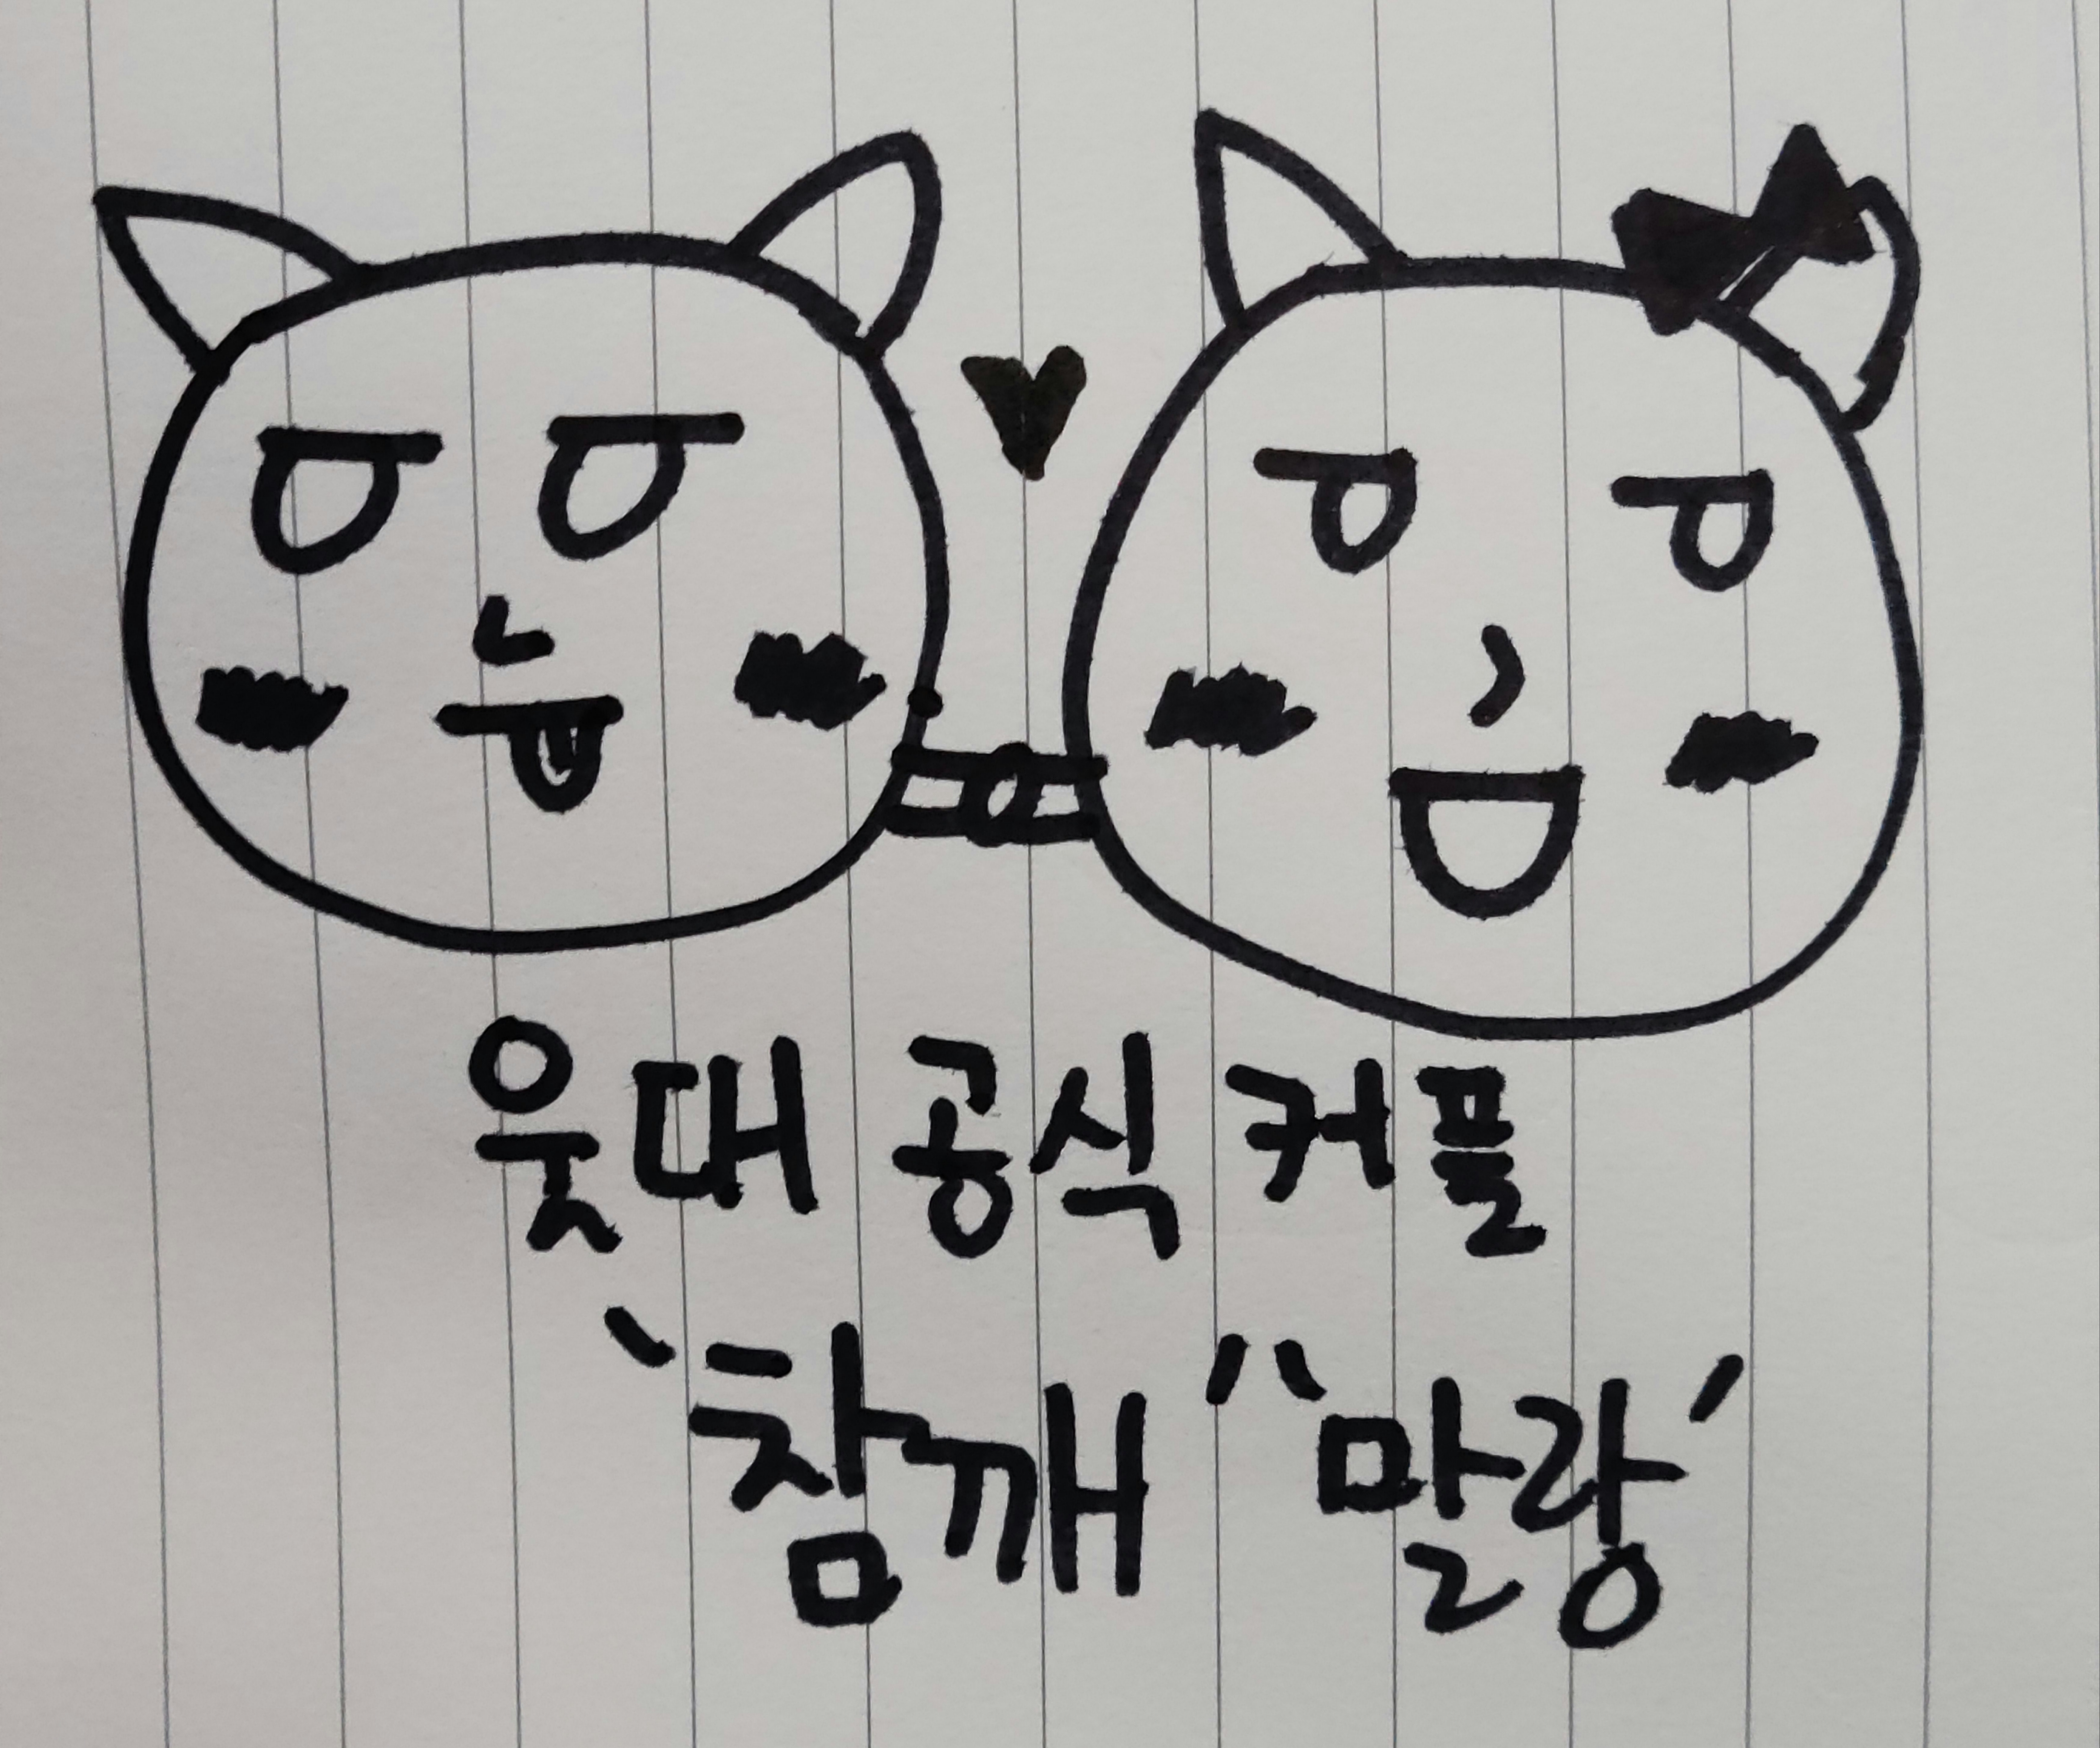 웃대 공식 커플
'참깨' '말랑'